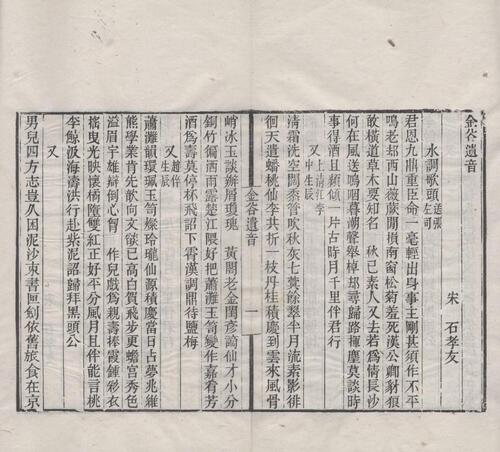 金谷遺音
宋 石孝友
水調歌頭 送張左司
君恩九鼎重臣命一毫輕出身事主剛甚須作不平
鳴老却西山薇蕨閒損南窗松菊羞死漢公卿豺狼
敢橫道草木要知名 秋已素人又去若爲情長沙
何在風送嗚咽暮潮聲舉棹却尋歸路揮麈莫談時
事得酒且頻傾一片古時月千里伴君行
又 上清江李中生辰
清霜洗空闊管吹秋灰七蓂餘翠半月流素影徘
徊天遣蟠桃仙李共折一枝丹桂積慶到雲來風骨
金谷遺音 一
峭冰玉談辦屑瓊瑰 黃閣老金閨彥謫仙才小分
銅竹徧洒雨露楚江隈好把蕭灘玉筍變作嘉肴芳
酒爲壽莫停杯飛詔下霄漢調鼎待鹽梅
又 趙倅生辰
蕭灘韻環珮玉筍粲玲瓏仙源積慶當日占夢兆維
熊學業肯先歆向文欲已高白賀飛步更蟾宮秀色
溢眉宇雄辯倒心胷 作兒戲爲親壽捧霞鍾彩衣
搖曳光映懷橘墮雙紅正好平分風月且伴能言桃
李鯨汲海濤洪行赴紫泥詔歸拜黑頭公
又
男兒四方志豈久困泥沙束書匣劍依舊旅食在京